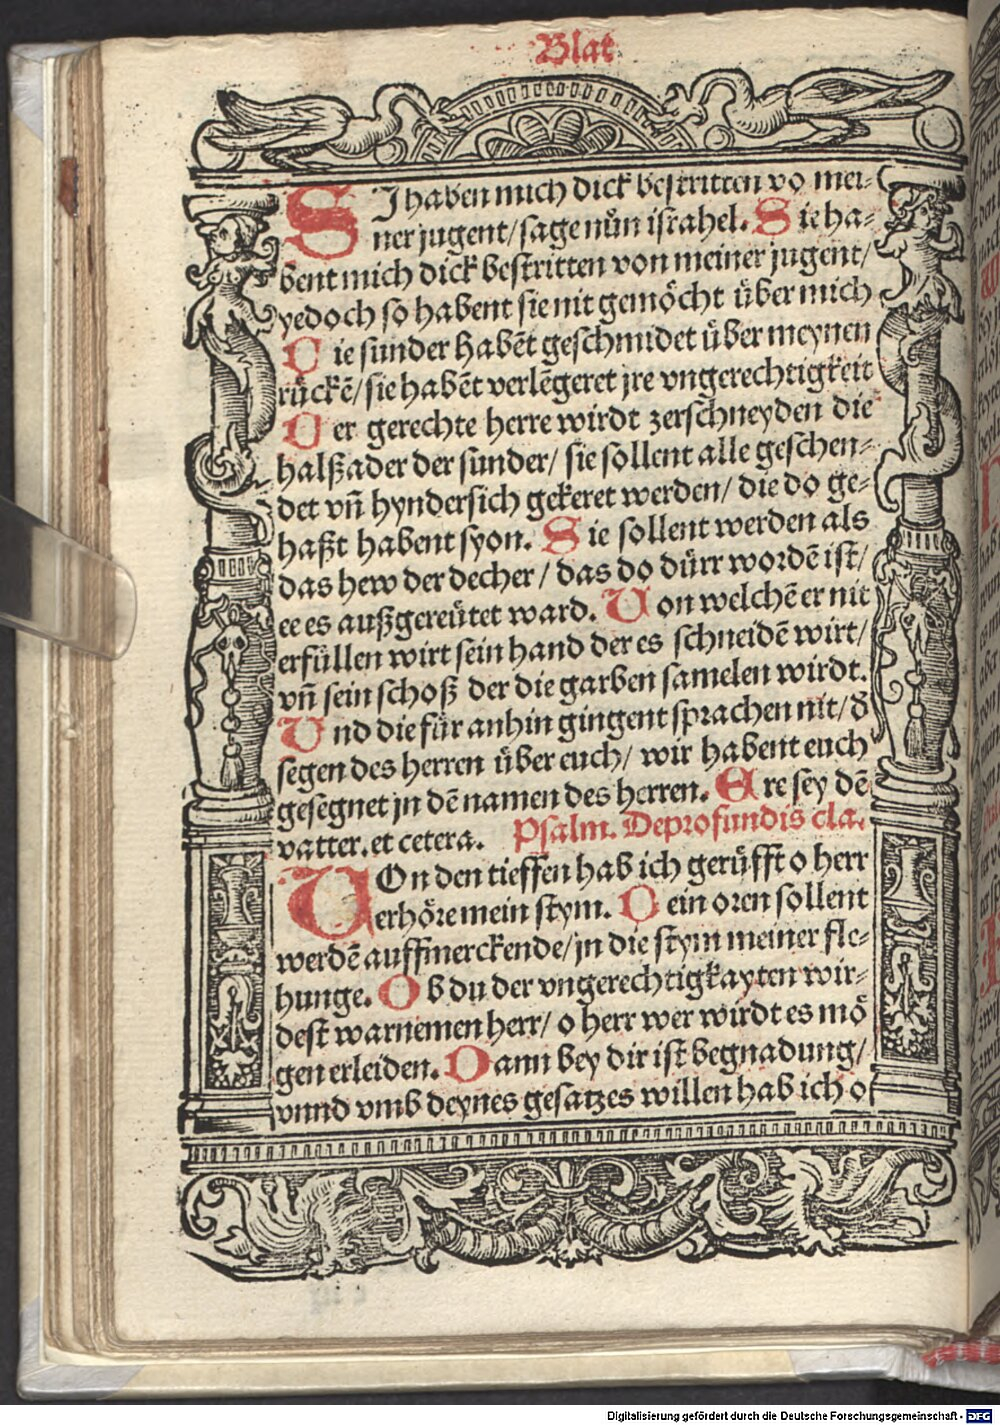 Blat
SJ haben mich dick bestritten vō mei⸗
ner jugent/ sage nůn israhel. Sie ha⸗
bent mich dick bestritten von meiner jugent/
yedoch so habent sie nit gemöcht über mich
Die sunder habēt geschmidet über meynen
rückē/ sie habēt verlēgeret jre vngerechtigkeit
Der gerechte herre wirdt zerschneyden die
halßader der sunder/ sie sollent alle geschen⸗
det vñ hyndersich gekeret werden/ die do ge⸗
haßt habent syon. Sie sollent werden als
das hew der decher/ das do dürr wordē ist/
ee es außgereütet ward. Von welchē er nit
erfüllen wirt sein hand der es schneidē wirt/
vñ sein schoß der die garben samelen wirdt.
Vnd die für anhin gingent sprachen nit/ đ
segen des herren über euch/ wir habent euch
gesegnet jn dē namen des herren. Ere sey dē
vatter. et cetera. Psalm. Deprofundis cla.
VOn den tieffen hab ich gerüfft o herr
erhöre mein stym. Dein oren sollent
werdē auffmerckende/ jn die stym meiner fle⸗
hunge. Ob du der vngerechtigkayten wir⸗
dest warnemen herr/ o herr wer wirdt es mö
gen erleiden. Dann bey dir ist begnadung/
vnnd vmb deynes gesatzes willen hab ich o
Digitalisierung gefördert durch die Deutsche Forschungsgemeinschaft - DFG